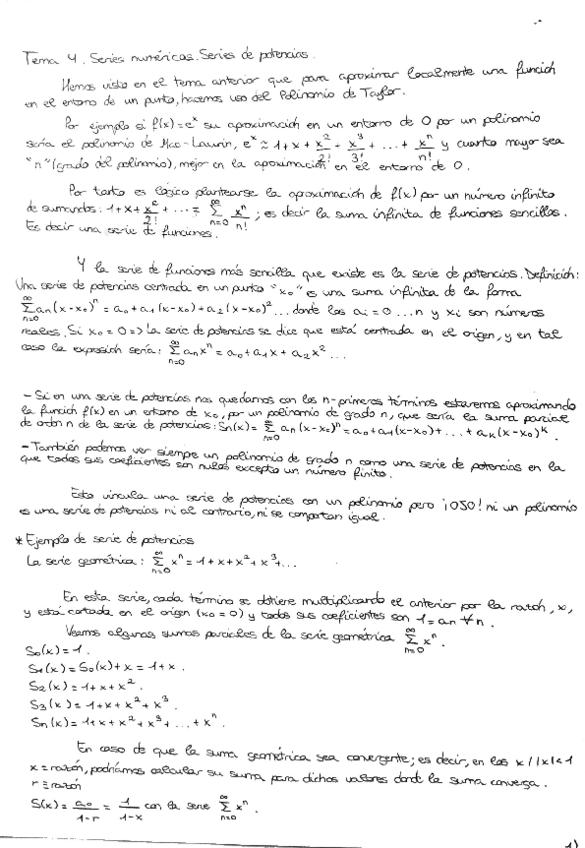 Tema 4. Series numéricas. Series de potencias.
Hemos visto en el tema anterior que para aproximar localmente una función
en el entorno de un punto, hacemos uso del Polinomio de Taylor.
Por ejemplo si f(x)=e^x su aproximación en un entorno de 0 por un polinomio
sería el polinomio de Mac-Laurin, e^x ≈ 1+x+x^2/2!+x^3/3!+...+x^n/n! y cuanto mayor sea
"n" (grado del polinomio), mejor en la aproximación en el entorno de 0.
Por tanto es lógico plantearse la aproximación de f(x) por un número infinito
de sumandos: 1+x+x^2/2!+...= ∑_{n=0}^∞ x^n/n! ; es decir la suma infinita de funciones sencillas.
Es decir una serie de funciones.
Y la serie de funciones más sencilla que existe es la serie de potencias. Definición:
Una serie de potencias centrada en un punto "x₀" es una suma infinita de la forma
∑_{n=0}^∞ an(x-x₀)^n = a₀+a₁(x-x₀)+a₂(x-x₀)^2... donde los ai=0...n y xi son números
reales. Si x₀=0=> La serie de potencias se dice que está centrada en el origen, y en tal
caso la expresión sería: ∑_{n=0}^∞ anx^n = a₀+a₁x+a₂x^2...
- Si en una serie de potencias nos quedamos con los n-primeros términos estaremos aproximando
la función f(x) en un entorno de x₀, por un polinomio de grado n, que sería la suma parcial
de orden n de la serie de potencias: Sn(x) = ∑_{n=0}^∞ an(x-x₀)^n = a₀+a₁(x-x₀)+...+aₖ(x-x₀)^k.
- También podemos ver siempre un polinomio de grado n como una serie de potencias en la
que todos sus coeficientes son nulos excepto un número finito.
Esto vincula una serie de potencias con un polinomio pero ¡OJO! ni un polinomio
es una serie de potencias ni al contrario, ni se comportan igual.
* Ejemplo de serie de potencias
La serie geométrica: ∑_{n=0}^∞ x^n = 1+x+x^2+x^3+...
En esta serie, cada término se obtiene multiplicando el anterior por la razón, x,
y está centrada en el origen (x₀=0) y todos sus coeficientes son 1=an ∀n.
Veamos algunas sumas parciales de la serie geométrica ∑_{n=0}^∞ x^n.
S₀(x)=1.
S₁(x)=S₀(x)+x=1+x.
S₂(x)=1+x+x^2.
S₃(x)=1+x+x^2+x^3.
Sn(x)=1+x+x^2+x^3+...+x^n.
En caso de que la suma geométrica sea convergente; es decir, en los x / |x|<1
x=razón, podríamos calcular su suma para dichos valores donde la suma converga.
r=razón
S(x)= a₀/1-r = 1/1-x con la serie ∑_{n=0}^∞ x^n.
1)